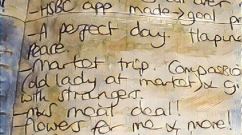 HSBC app made > goal
- A perfect day.
Peace.
- Market trip. Compassion
(old lady at market) & gi
with strangers.
- M&S meal deal!
Flowers for me & more!